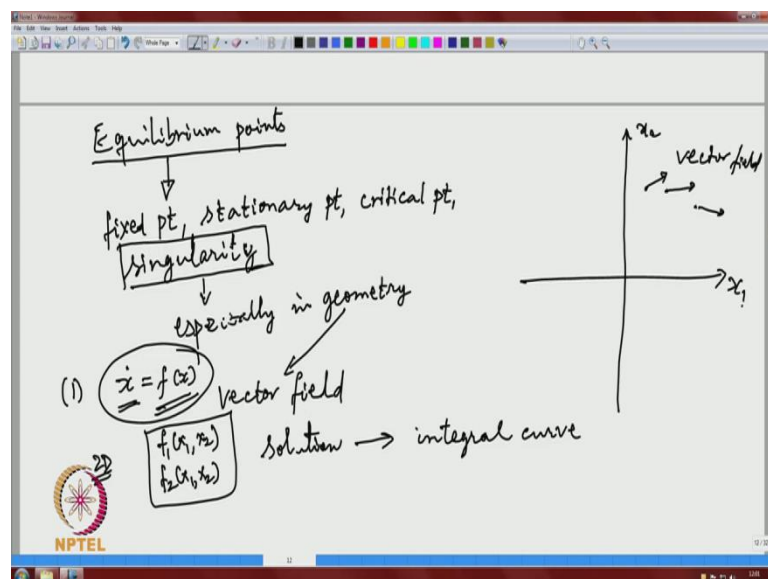 Note1 - Windows Journal
File Edit View Insert Actions Tools Help
Whole Page
Equilibrium points
fixed pt, stationary pt, critical pt,
singularity
especially in geometry
(1) ẋ = f(x) vector field
f₁(x₁, x₂)
f₂(x₁, x₂)
2D
solution → integral curve
x₂
vector field
x₁
NPTEL
12